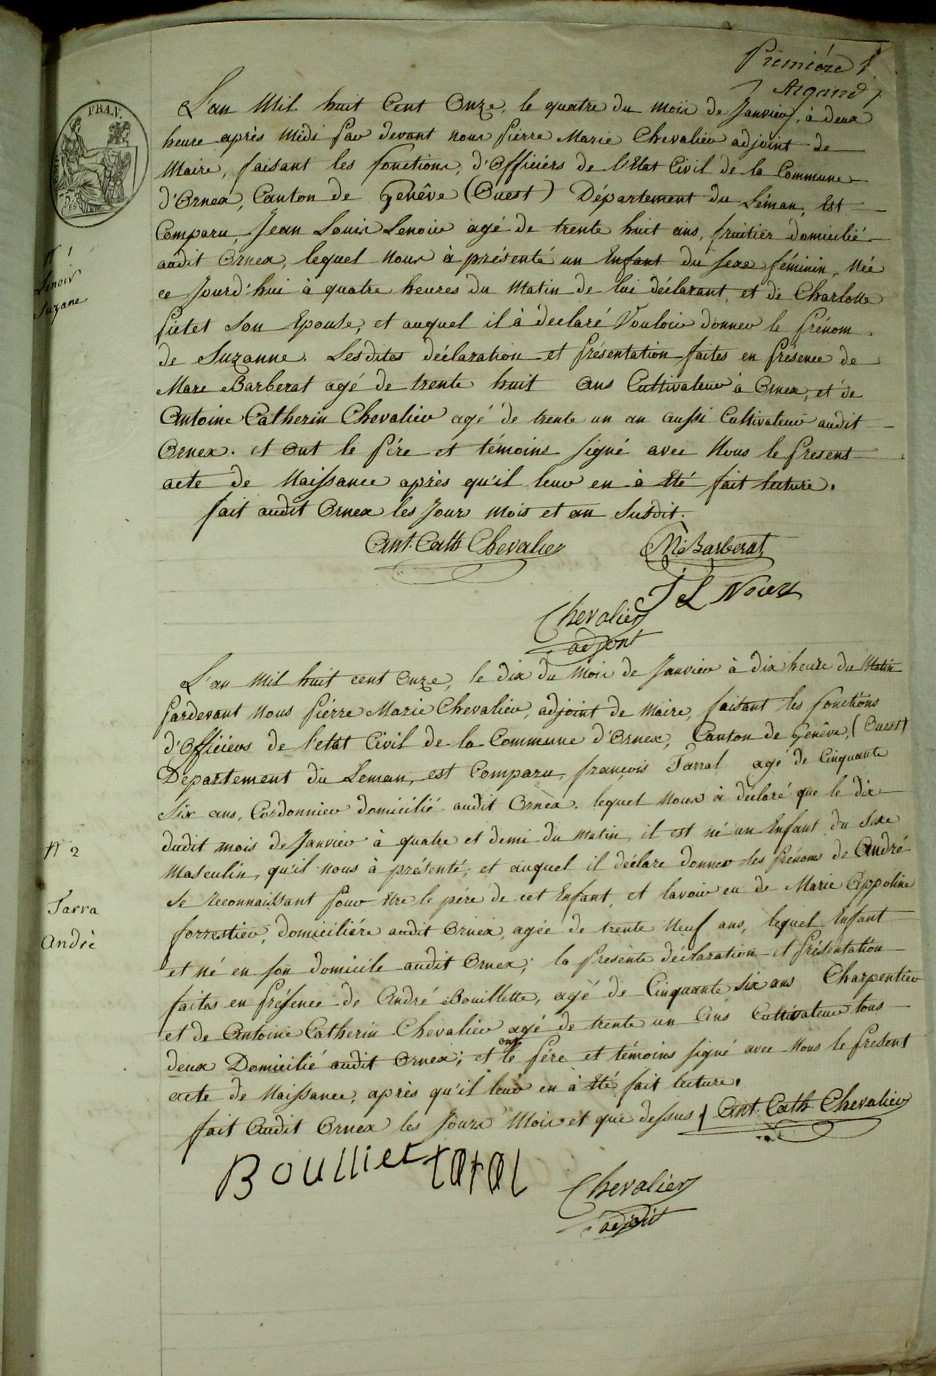 Première
Argand
FRAN.
L'an Mil huit Cent Onze, le quatre du mois de Janvier, à deux
heure après Midi Par devant nous Pierre Marie Chevalier adjoint de
Maire, faisant les fonctions, d'Officiers de l'Etat Civil de la Commune
d'Ornex, Canton de Genêve (Ouest) Département du Léman, Est
Comparu, Jean Louis Lenoir agé de trente huit ans, fruitier domicilié
audit Ornex, lequel nous à présenté un Enfant du sexe féminin, Née
ce Jourd'hui à quatre heures du Matin de lui déclarant, et de Charlotte
Pictet Son Epouse, et auquel il à déclaré Vouloir donner le Prénom
de Suzanne. Lesdites déclaration et Présentation faites en Présence de
Marc Barberat agé de trente huit ans Cultivateur à Ornex, et de
Antoine Catherin Chevalier agé de trente un an aussi Cultivateur audit
Ornex. et ont le Pére et témoins signé avec Nous le Present
acte de Naissance après qu'il leur en à été fait lecture.
fait audit Ornex les Jour mois et an Susdit.
N° 1
Lenoir
Suzane
Ant. Cath Chevalier
M Barberat
J L Noir
Chevalier
adjoint
L'an Mil huit cent Onze, le dix du Mois de Janvier à dix heure du Matin
Pardevant Nous Pierre Marie Chevalier, adjoint de Maire, faisant les fonctions
d'Officiers de l'etat Civil de la Commune d'Ornex, Canton de Genêve, (Ouest)
Département du Leman, est Comparu, françois Tarral agé de Cinquante
Six ans, Cordonnier domicilié audit Ornex. lequel Nous à declaré que le dix
dudit mois de Janvier à quatre et demi du matin, il est né un Enfant du Sexe
Masculin, qu'il nous à présenté, et auquel il déclare donner les Prénoms de André
Se reconnaissant Pour être le pére de cet Enfant, et l'avoir eu de Marie Appoline
forrestier, domiciliére audit Ornex, agée de trente Neuf ans, lequel Enfant
et né en son domicile audit Ornex; la Presente déclaration et Présentation
faites en Présence de André Bouillette, agé de Cinquante six ans Charpentier
et de Antoine Catherin Chevalier agé de trente un Ans Cultivateur tous
deux Domicilié audit Ornex; et ont le Pére et témoins signé avec Nous le Present
acte de Naissance, après qu'il leur en à été fait lecture.
fait Audit Ornex les Jours Mois et que dessus
N° 2
Tarra
André
Ant. Cath Chevalier
Boulliet taral
Chevalier
adjoint